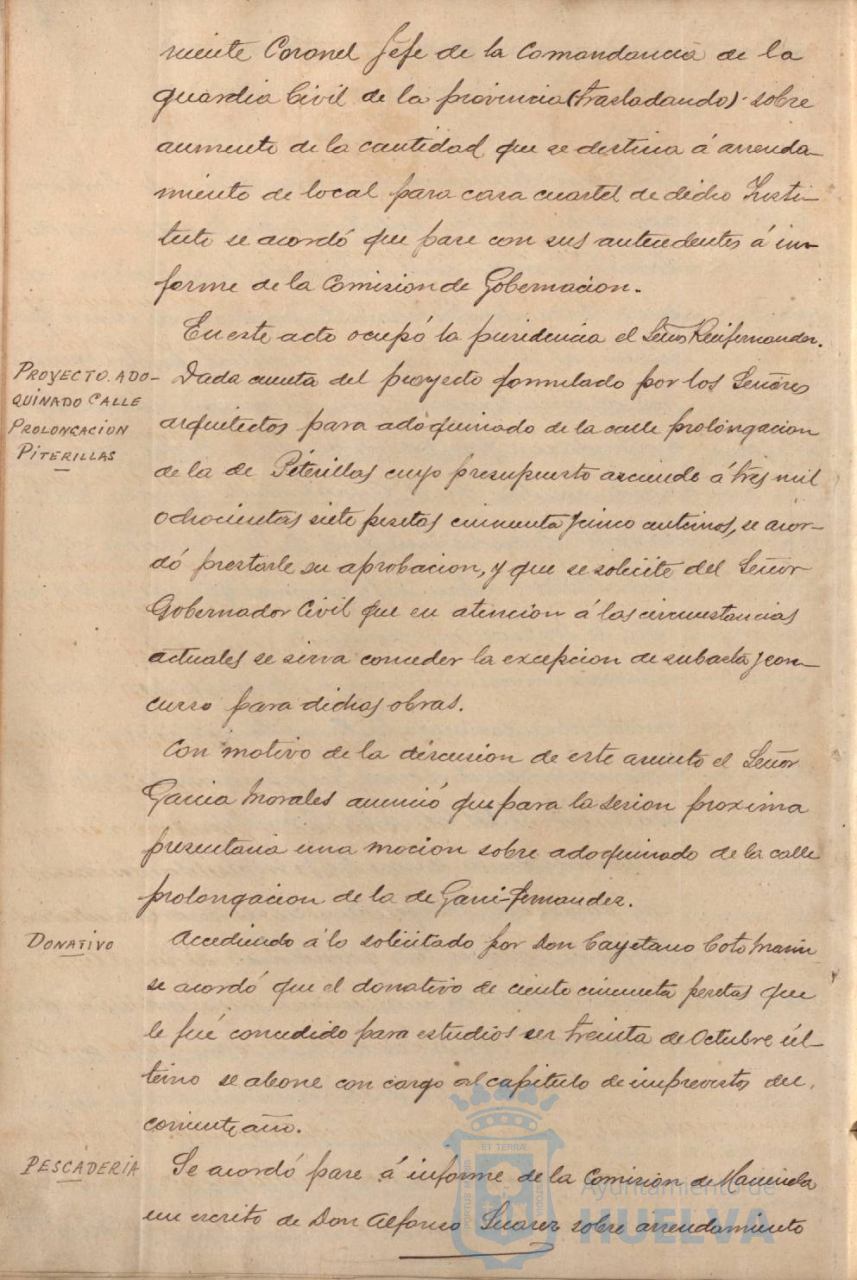 niente Coronel Jefe de la Comandancia de la
guardia Civil de la provincia (trasladando) sobre
aumento de la cantidad que se destina á arrenda-
miento de local para casa cuartel de dicho Insti-
tuto se acordó que pase con sus antecedentes á in-
forme de la Comision de Gobernacion.
En este acto ocupó la presidencia el Señor
PROYECTO. ADO-
QUINADO CALLE
PROLONGACION
PITERILLAS
Dada cuenta del proyecto formulado por los Señores
arquitectos para adoquinado de la calle prolongacion
de la de Piterillas cuyo presupuesto asciende á tres mil
ochocientas siete pesetas cincuenta y cinco centimos, se acor-
dó prestarle su aprobacion, y que se solicite del Señor
Gobernador Civil que en atencion á las circunstancias
actuales se sirva conceder la excepcion de subasta y con-
curso para dichas obras.
Con motivo de la discusion de este asunto el Señor
Garcia Morales anunció que para la sesion proxima
presentaria una mocion sobre adoquinado de la calle
prolongacion de la de Garci-Fernandez.
DONATIVO
Accediendo á lo solicitado por Don Cayetano Coto Marin
se acordó que el donativo de ciento cincuenta pesetas que
le fué concedido para estudios en treinta de Octubre úl-
timo se abone con cargo al capitulo de imprevistos del
corriente año.
PESCADERIA
Se acordó pase á informe de la Comision de Hacienda
un escrito de Don Alfonso Suarez sobre arrendamiento
ET TERRÆ
PORTUS
CUSTODIA
Ayuntamiento de
HUELVA